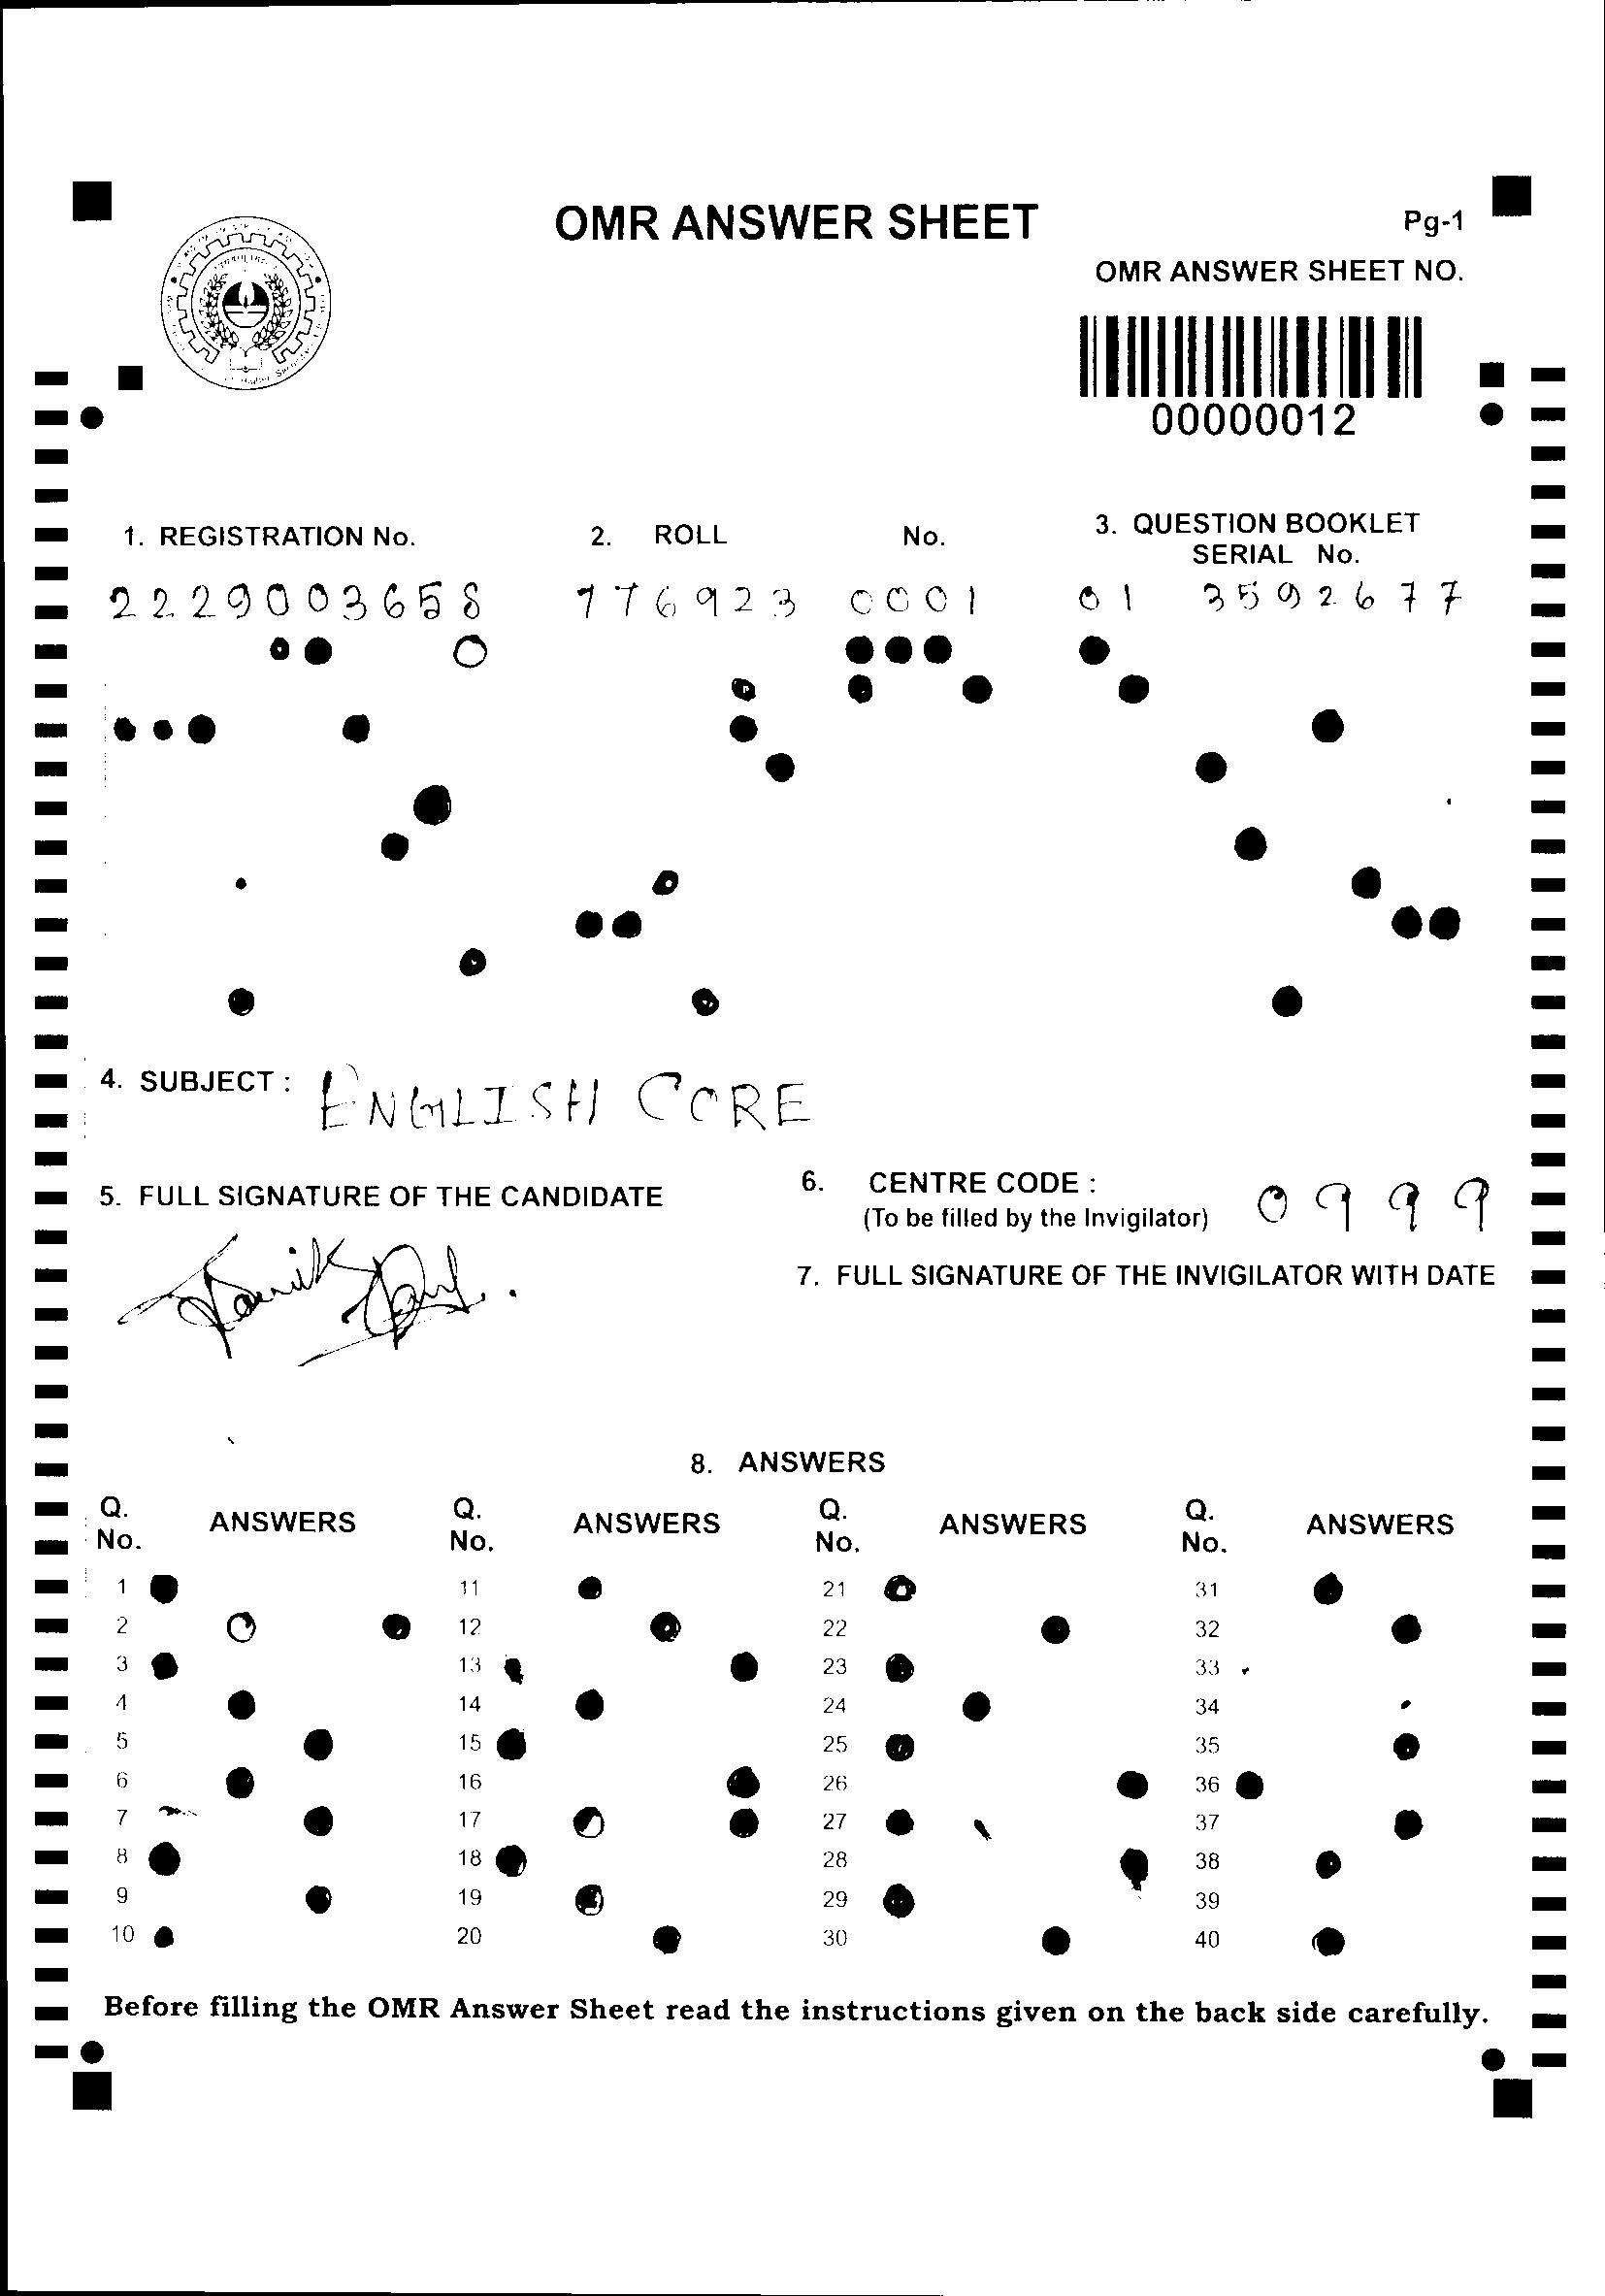 OMR ANSWER SHEET
Pg-1
OMR ANSWER SHEET NO.
00000012
1. REGISTRATION No. 2. ROLL No. 3. QUESTION BOOKLET
SERIAL No.
2229003658 776923 0001 01 3592677
4. SUBJECT : ENGLISH CORE
5. FULL SIGNATURE OF THE CANDIDATE
6. CENTRE CODE : 0999
(To be filled by the Invigilator)
7. FULL SIGNATURE OF THE INVIGILATOR WITH DATE
8. ANSWERS
Q. No. ANSWERS Q. No. ANSWERS Q. No. ANSWERS Q. No. ANSWERS
1 11 21 31
2 12 22 32
3 13 23 33
4 14 24 34
5 15 25 35
6 16 26 36
7 17 27 37
8 18 28 38
9 19 29 39
10 20 30 40
Before filling the OMR Answer Sheet read the instructions given on the back side carefully.